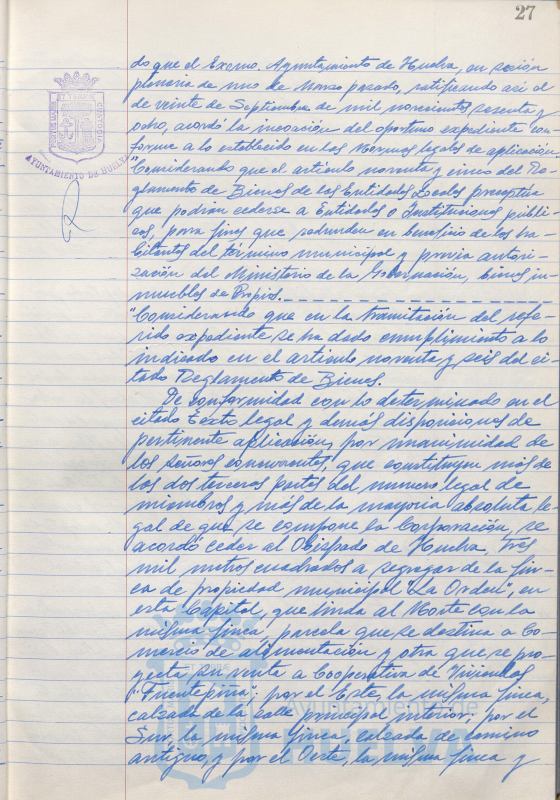 27
do que el Excmo. Ayuntamiento de Huelva, en sesión
plenaria de uno de Marzo pasado, ratificando así el
de veinte de Septiembre de mil novecientos sesenta y
ocho, acordó la incoación del oportuno expediente con
forme a lo establecido en las Normas legales de aplicación
"Considerando que el artículo noventa y cinco del Re-
glamento de Bienes de las Entidades Locales preceptúa
que podrán cederse a Entidades o Instituciones públi-
cas, para fines que redunden en beneficio de los ha-
bitantes del término municipal y previa autori-
zación del Ministerio de la Gobernación, bienes in-
muebles de Propios.
"Considerando que en la tramitación del refe-
rido expediente se ha dado cumplimiento a lo
indicado en el artículo noventa y seis del ci-
tado Reglamento de Bienes.
De conformidad con lo determinado en el
citado Texto legal y demás disposiciones de
pertinente aplicación, por unanimidad de
los señores concurrentes, que constituyen más de
los dos terceras partes del número legal de
miembros y más de la mayoría absoluta le-
gal de que se compone la Corporación, se
acordó ceder al Obispado de Huelva, tres
mil metros cuadrados a segregar de la fin-
ca de propiedad municipal "La Orden", en
esta Capital, que linda al Norte con la
misma finca, parcela que se destina a Co-
mercio de alimentación y otra que se pro-
yecta en venta a Cooperativa de Viviendas
"Fuentepiña"; por el Este, la misma finca,
calzada de la calle principal interior; por el
Sur, la misma finca, calzada de camino
antiguo, y por el Oeste, la misma finca y
AYUNTAMIENTO DE HUELVA
Ayuntamiento de
HUELVA